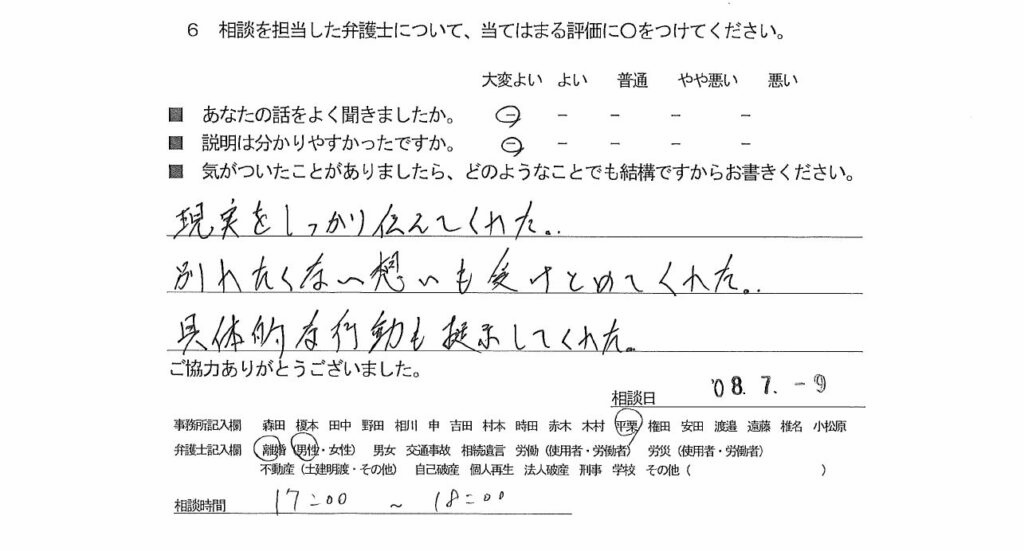 6 相談を担当した弁護士について、当てはまる評価に○をつけてください。
大変よい よい 普通 やや悪い 悪い
■ あなたの話をよく聞きましたか。 － － － － －
■ 説明は分かりやすかったですか。 － － － － －
■ 気がついたことがありましたら、どのようなことでも結構ですからお書きください。
現実をしっかり伝えてくれた。
別れたくない想いも受けとめてくれた。
具体的な行動も提示してくれた。
ご協力ありがとうございました。
相談日 '08.7.-9
事務所記入欄 森田 榎本 田中 野田 相川 申 吉田 村本 時田 赤木 木村 平栗 権田 安田 渡邉 遠藤 椎名 小松原
弁護士記入欄 離婚（男性・女性） 男女 交通事故 相続遺言 労働（使用者・労働者） 労災（使用者・労働者）
不動産（土建明渡・その他） 自己破産 個人再生 法人破産 刑事 学校 その他（ ）
相談時間 17:00 ~ 18:00